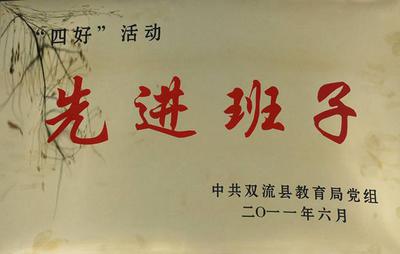 “四好”活动
先进班子
中共双流县教育局党组
二〇一一年六月